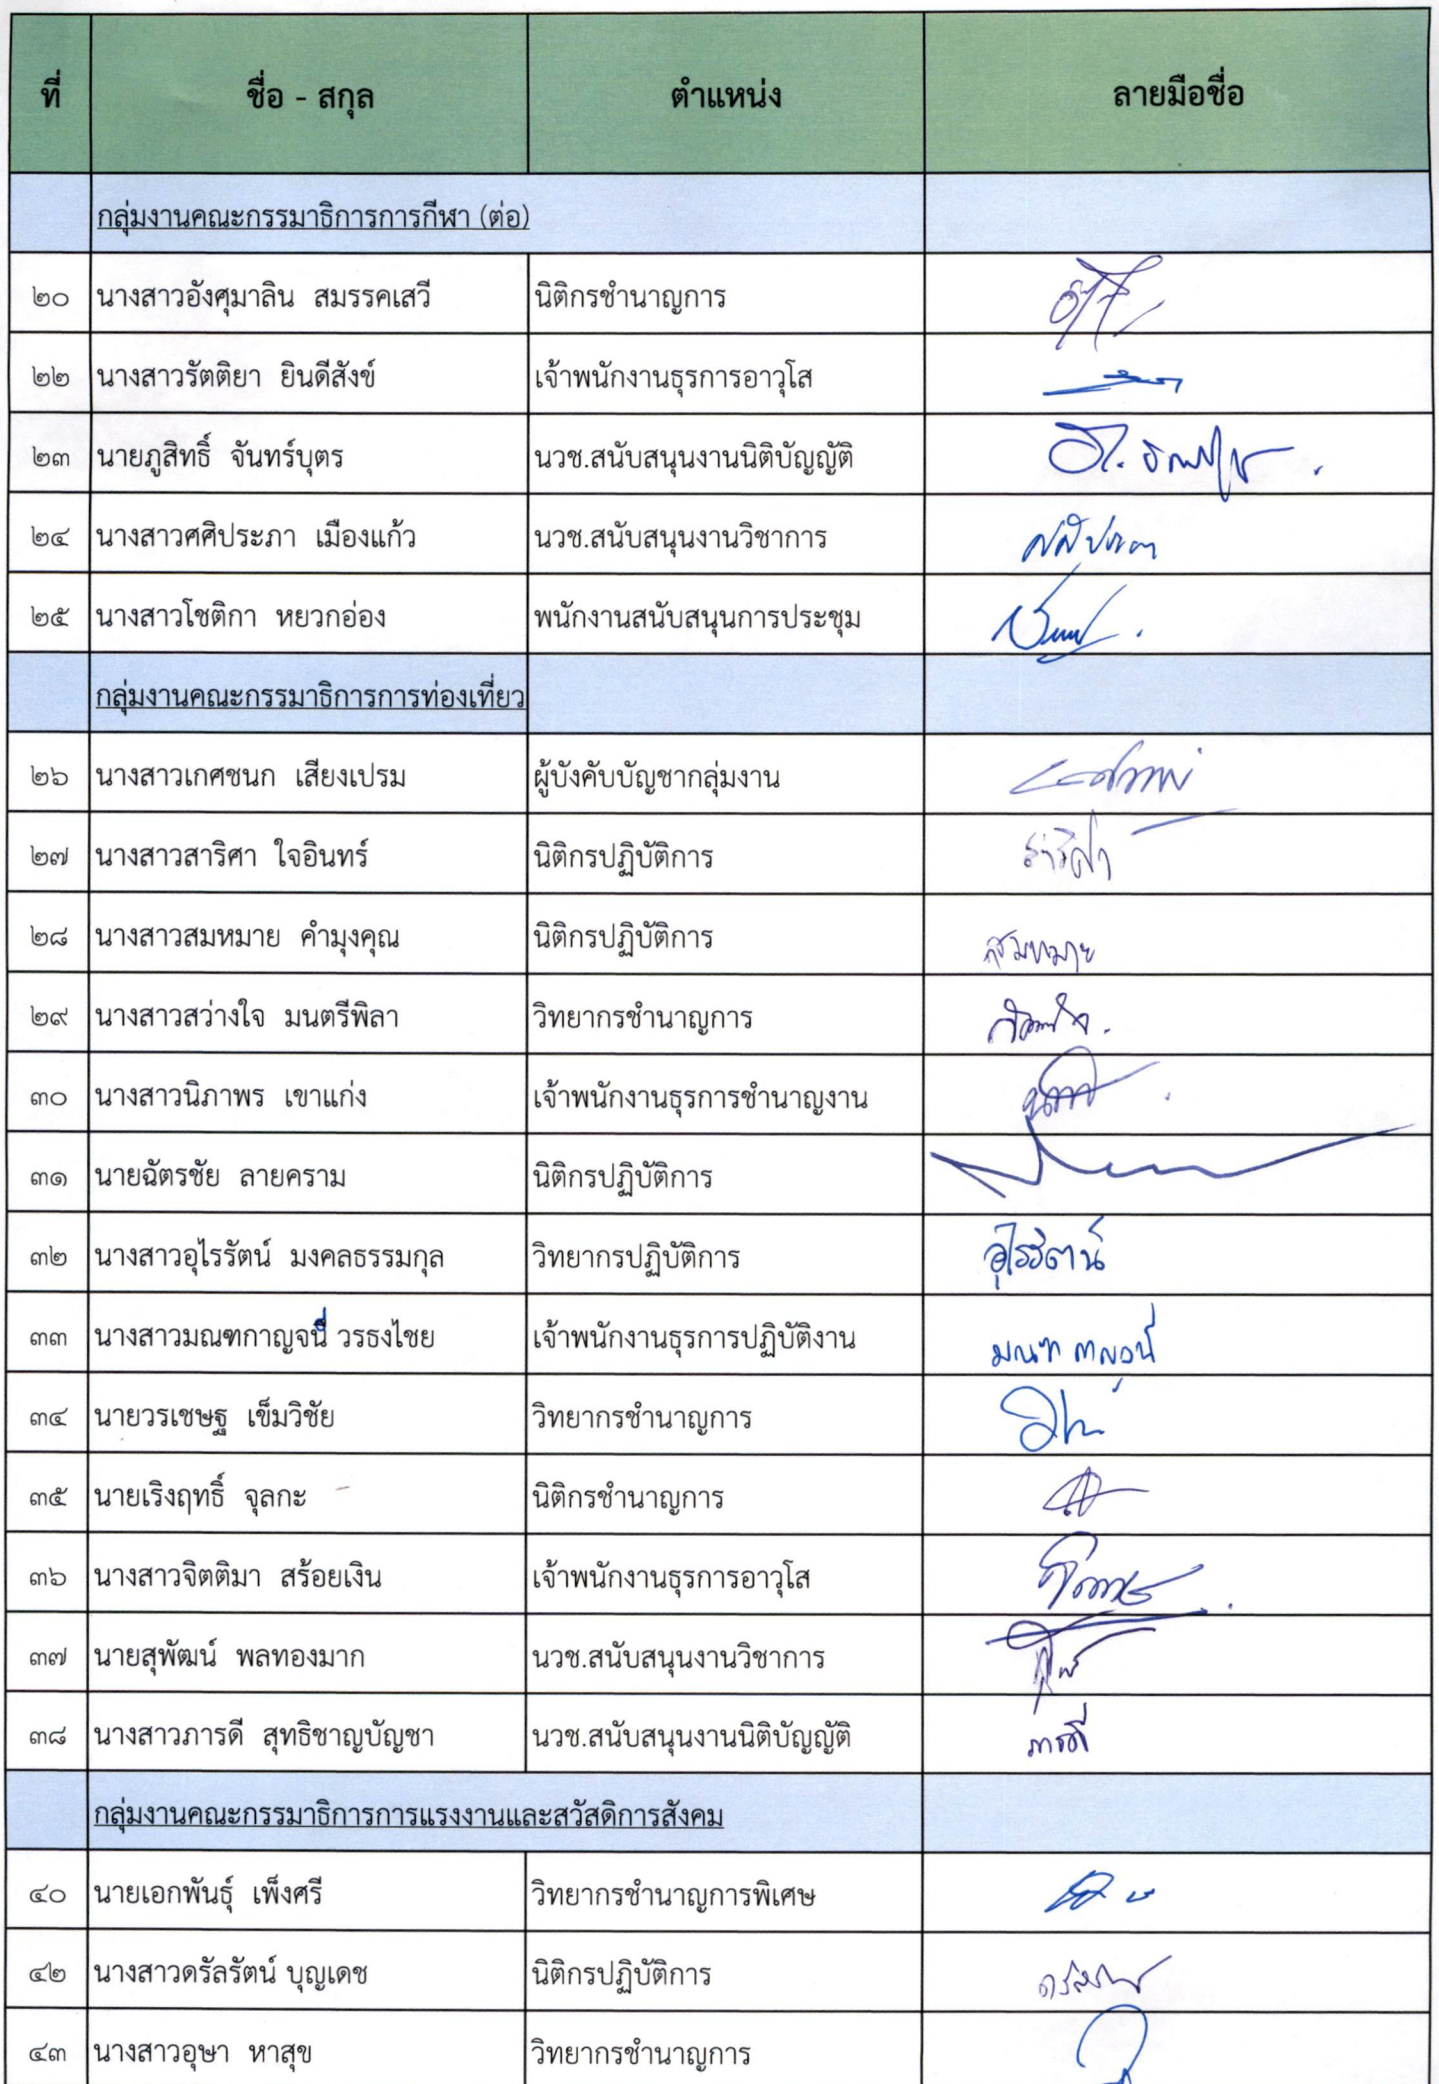 ที่ ชื่อ - สกุล ตำแหน่ง ลายมือชื่อ
กลุ่มงานคณะกรรมาธิการการกีฬา (ต่อ)
๒๐ นางสาวอังศุมาลิน สมรรคเสวี นิติกรชำนาญการ
๒๒ นางสาวรัตติยา ยินดีสังข์ เจ้าพนักงานธุรการอาวุโส
๒๓ นายภูสิทธิ์ จันทร์บุตร นวช.สนับสนุนงานนิติบัญญัติ
๒๔ นางสาวศศิประภา เมืองแก้ว นวช.สนับสนุนงานวิชาการ ศศิประภา
๒๕ นางสาวโชติกา หยวกอ่อง พนักงานสนับสนุนการประชุม
กลุ่มงานคณะกรรมาธิการการท่องเที่ยว
๒๖ นางสาวเกศชนก เสียงเปรม ผู้บังคับบัญชากลุ่มงาน
๒๗ นางสาวสาริศา ใจอินทร์ นิติกรปฏิบัติการ สาริศา
๒๘ นางสาวสมหมาย คำมุงคุณ นิติกรปฏิบัติการ สมหมาย
๒๙ นางสาวสว่างใจ มนตรีพิลา วิทยากรชำนาญการ สว่างใจ
๓๐ นางสาวนิภาพร เขาแก่ง เจ้าพนักงานธุรการชำนาญงาน
๓๑ นายฉัตรชัย ลายคราม นิติกรปฏิบัติการ
๓๒ นางสาวอุไรรัตน์ มงคลธรรมกุล วิทยากรปฏิบัติการ อุไรรัตน์
๓๓ นางสาวมณฑกาญจนี์ วรธงไชย เจ้าพนักงานธุรการปฏิบัติงาน มณฑกาญจนี์
๓๔ นายวรเชษฐ เข็มวิชัย วิทยากรชำนาญการ
๓๕ นายเริงฤทธิ์ จุลกะ นิติกรชำนาญการ
๓๖ นางสาวจิตติมา สร้อยเงิน เจ้าพนักงานธุรการอาวุโส
๓๗ นายสุพัฒน์ พลทองมาก นวช.สนับสนุนงานวิชาการ
๓๘ นางสาวภารดี สุทธิชาญบัญชา นวช.สนับสนุนงานนิติบัญญัติ ภารดี
กลุ่มงานคณะกรรมาธิการการแรงงานและสวัสดิการสังคม
๔๐ นายเอกพันธุ์ เพ็งศรี วิทยากรชำนาญการพิเศษ
๔๒ นางสาวดรัลรัตน์ บุญเดช นิติกรปฏิบัติการ
๔๓ นางสาวอุษา หาสุข วิทยากรชำนาญการ